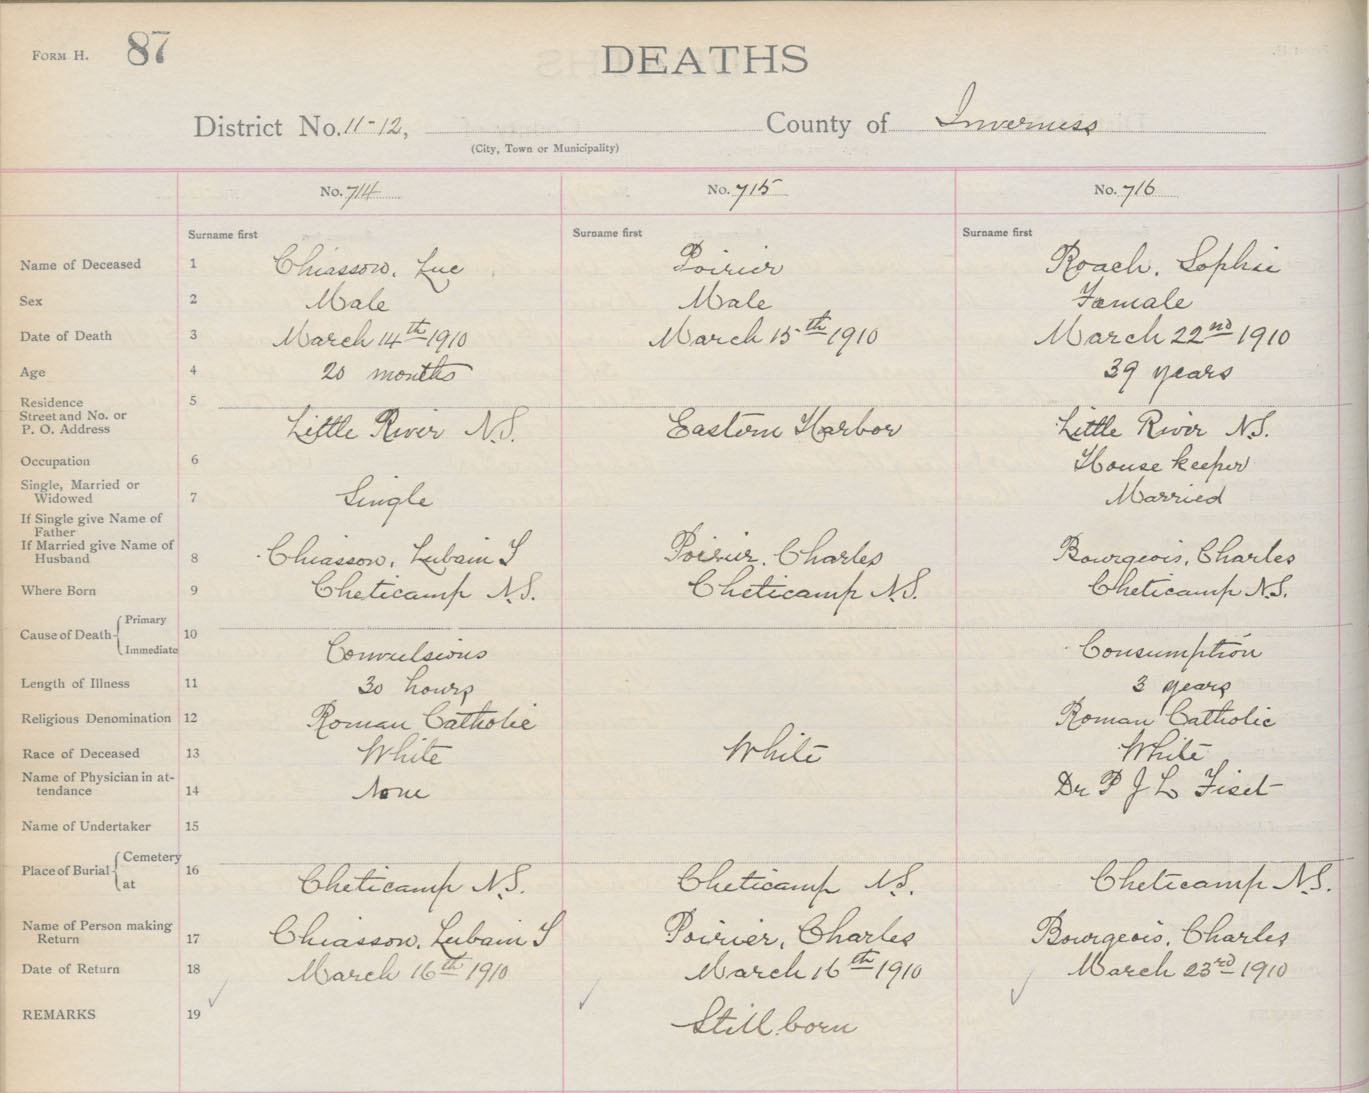 FORM H. 87
DEATHS
District No. 11-12, County of Inverness
(City, Town or Municipality)
No. 714 No. 715 No. 716
Surname first Surname first Surname first
Name of Deceased 1 Chiasson, Luc Poirier Roach, Sophie
Sex 2 Male Male Female
Date of Death 3 March 14th 1910 March 15th 1910 March 22nd 1910
Age 4 20 months 39 years
Residence 5
Street and No. or
P. O. Address Little River N.S. Eastern Harbor Little River N.S.
Occupation 6 House keeper
Single, Married or
Widowed 7 Single Married
If Single give Name of
Father
If Married give Name of
Husband 8 Chiasson, Lubain S Poirier, Charles Bourgeois, Charles
Where Born 9 Cheticamp N.S. Cheticamp N.S. Cheticamp N.S.
Primary
Cause of Death 10
Immediate Convulsions Consumption
Length of Illness 11 30 hours 3 years
Religious Denomination 12 Roman Catholic Roman Catholic
Race of Deceased 13 White White White
Name of Physician in at-
tendance 14 None Dr P J L Fiset
Name of Undertaker 15
Cemetery
Place of Burial 16
at Cheticamp N.S. Cheticamp N.S. Cheticamp N.S.
Name of Person making
Return 17 Chiasson, Lubain S Poirier, Charles Bourgeois, Charles
Date of Return 18 March 16th 1910 March 16th 1910 March 23rd 1910
REMARKS 19 Still born